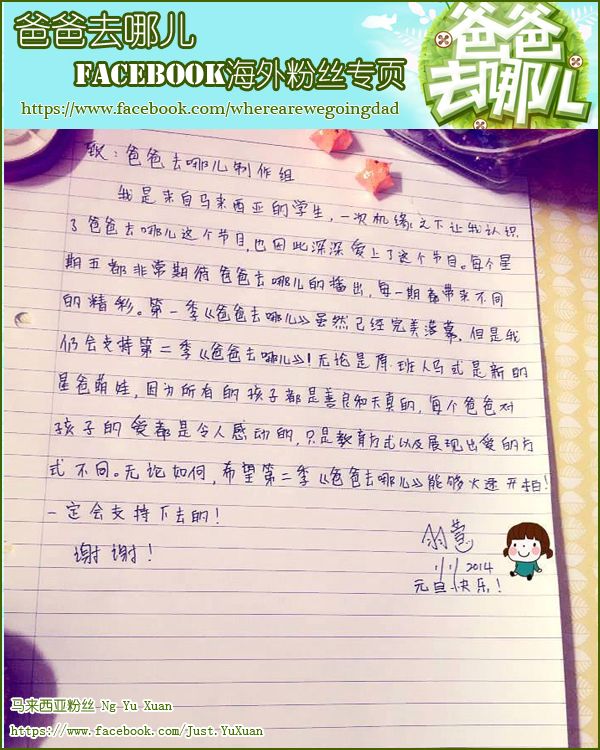 爸爸去哪儿
FACEBOOK海外粉丝专页
https://www.facebook.com/wherearewegoingdad
爸爸
去哪儿
致：爸爸去哪儿制作组
我是来自马来西亚的学生，一次机缘之下让我认识
了爸爸去哪儿这个节目，也因此深深爱上了这个节目。每个星
期五都非常期待爸爸去哪儿的播出，每一期都带来不同
的精彩。第一季《爸爸去哪儿》虽然已经完美落幕，但是我
仍会支持第二季《爸爸去哪儿》！无论是原班人马或是新的
星爸萌娃，因为所有的孩子都是善良和天真的，每个爸爸对
孩子的爱都是令人感动的，只是教育方式以及展现出爱的方
式不同。无论如何，希望第二季《爸爸去哪儿》能够火速开拍！
一定会支持下去的！
谢谢！
1/1/2014
元旦快乐！
马来西亚粉丝 Ng Yu Xuan
https://www.facebook.com/Just.YuXuan